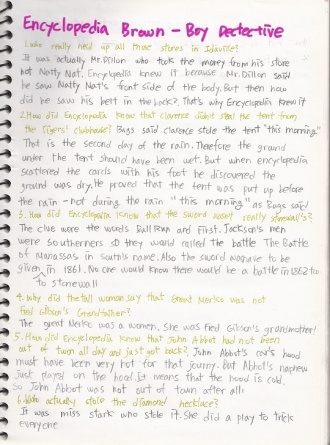 Encyclopedia Brown - Boy Dectective
1. Who really held up all those stores in Idaville?
It was actually Mr. Dillon who took the money from his store
not Natty Nat. Encyclopedia knew it because Mr. Dillon said
he saw Natty Nat's front side of the body. But then how
did he saw his belt in the back? That's why Encyclopedia knew it
2. How did Encyclopedia know that clarence didn't steal the tent from
the Tigers' clubhouse? Bugs said clarence stole the tent "this morning"
That is the second day of the rain. Therefore the ground
under the tent should have been wet. But when encyclopedia
scattered the cards with his foot he discovered the
ground was dry. He proved that the tent was put up before
the rain - not during the rain "this morning" as Bugs said
3. How did Encyclopedia know that the sword wasn't really stonewall's?
The clue were the words Bull Run and First. Jackson's men
were southerners so they would called the battle The Battle
of Manassas in south's name. Also the sword was to be
given in 1861. No one would know there would be a battle in 1862
to stonewall
4. Why did the tall woman say that Great Merko was not
Fred Gibson's Grandfather?
The great Merko was a women. She was Fred Gibson's grandmother!
5. How did Encyclopedia know that John Abbot had not been
out of town all day and just got back? John Abbot's car's hood
must have been very hot for that journy. But Abbot's nephew
just played on the hood. It means that the hood is cold.
So John Abbot was not out of town after all
6. Who actually stole the diamond necklace?
It was miss stark who stole it. She did a play to trick
everyone